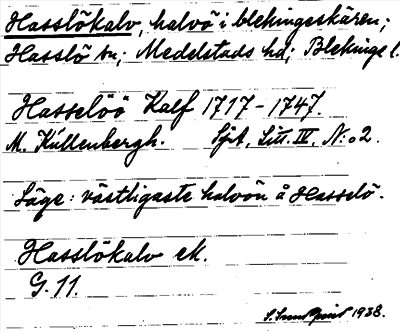 Hasslökalv, halvö i blekingeskären;
Hasslö sn; Medelstads hd; Blekinge l.
Hasselöö Kalf 1717-1747.
M. Küllenbergh. Sjöt, Litt. IV, N:o 2.
Läge: västligaste halvön å Hasslö.
Hasslökalv ek.
G. 11.
1938.